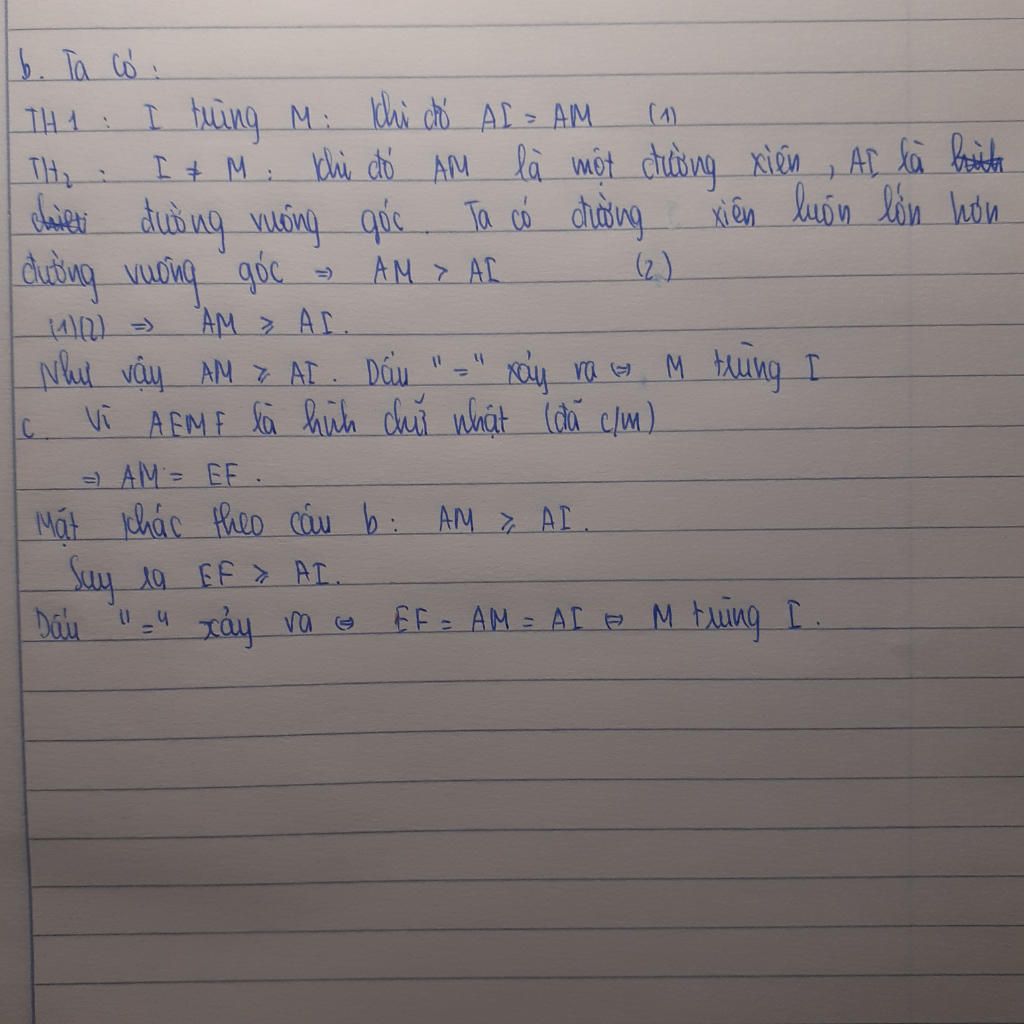 b. Ta có:
TH1: I trùng M: Khi đó AI = AM (1)
TH2: I ≠ M: Khi đó AM là một đường xiên, AI là
đường vuông góc. Ta có đường xiên luôn lớn hơn
đường vuông góc => AM > AI (2)
(1)(2) => AM ≥ AI.
Như vậy AM ≥ AI. Dấu "=" xảy ra <=> M trùng I
c. Vì AEMF là hình chữ nhật (đã c/m)
=> AM = EF.
Mặt khác theo câu b: AM ≥ AI.
Suy ra EF ≥ AI.
Dấu "=" xảy ra <=> EF = AM = AI <=> M trùng I.